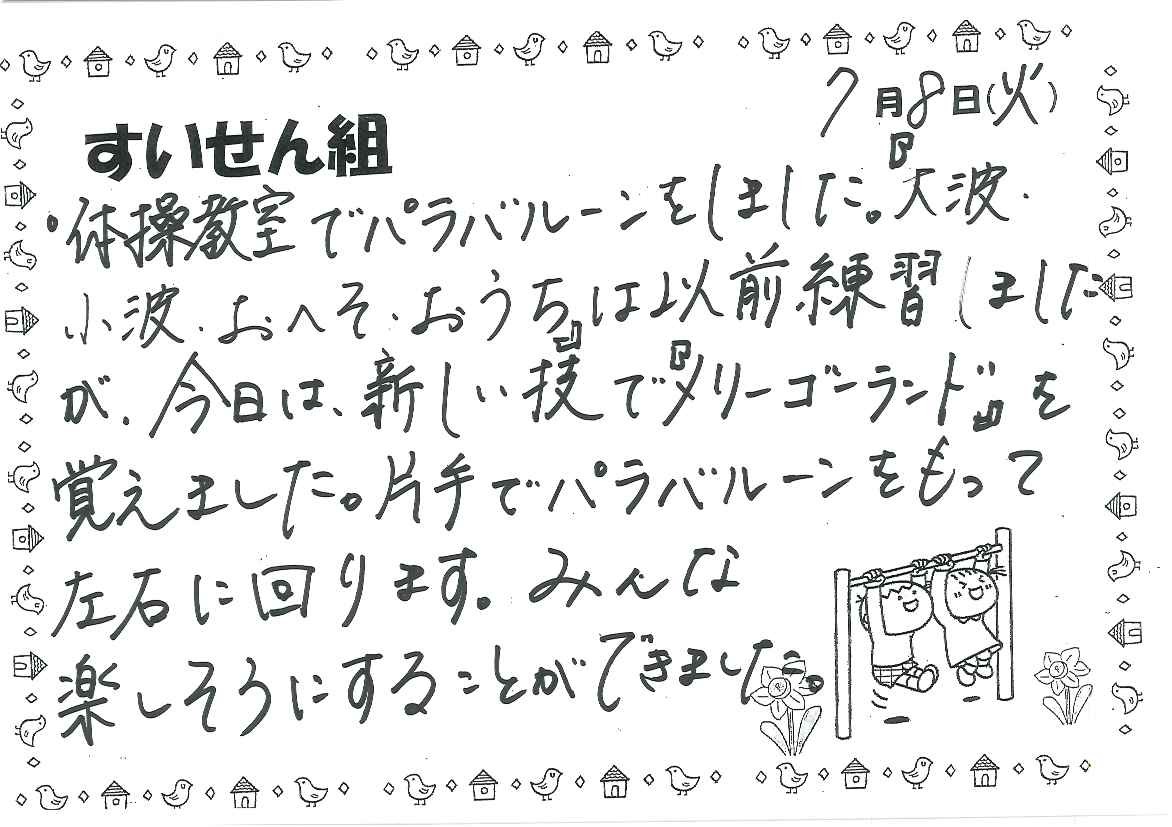 7月8日(火)
すいせん組
・体操教室でパラバルーンをしました。『大波・
小波・おへそ・おうち』は以前練習しました
が、今日は、新しい技で『メリーゴーランド』を
覚えました。片手でパラバルーンをもって
左右に回ります。みんな
楽しそうにすることができました。